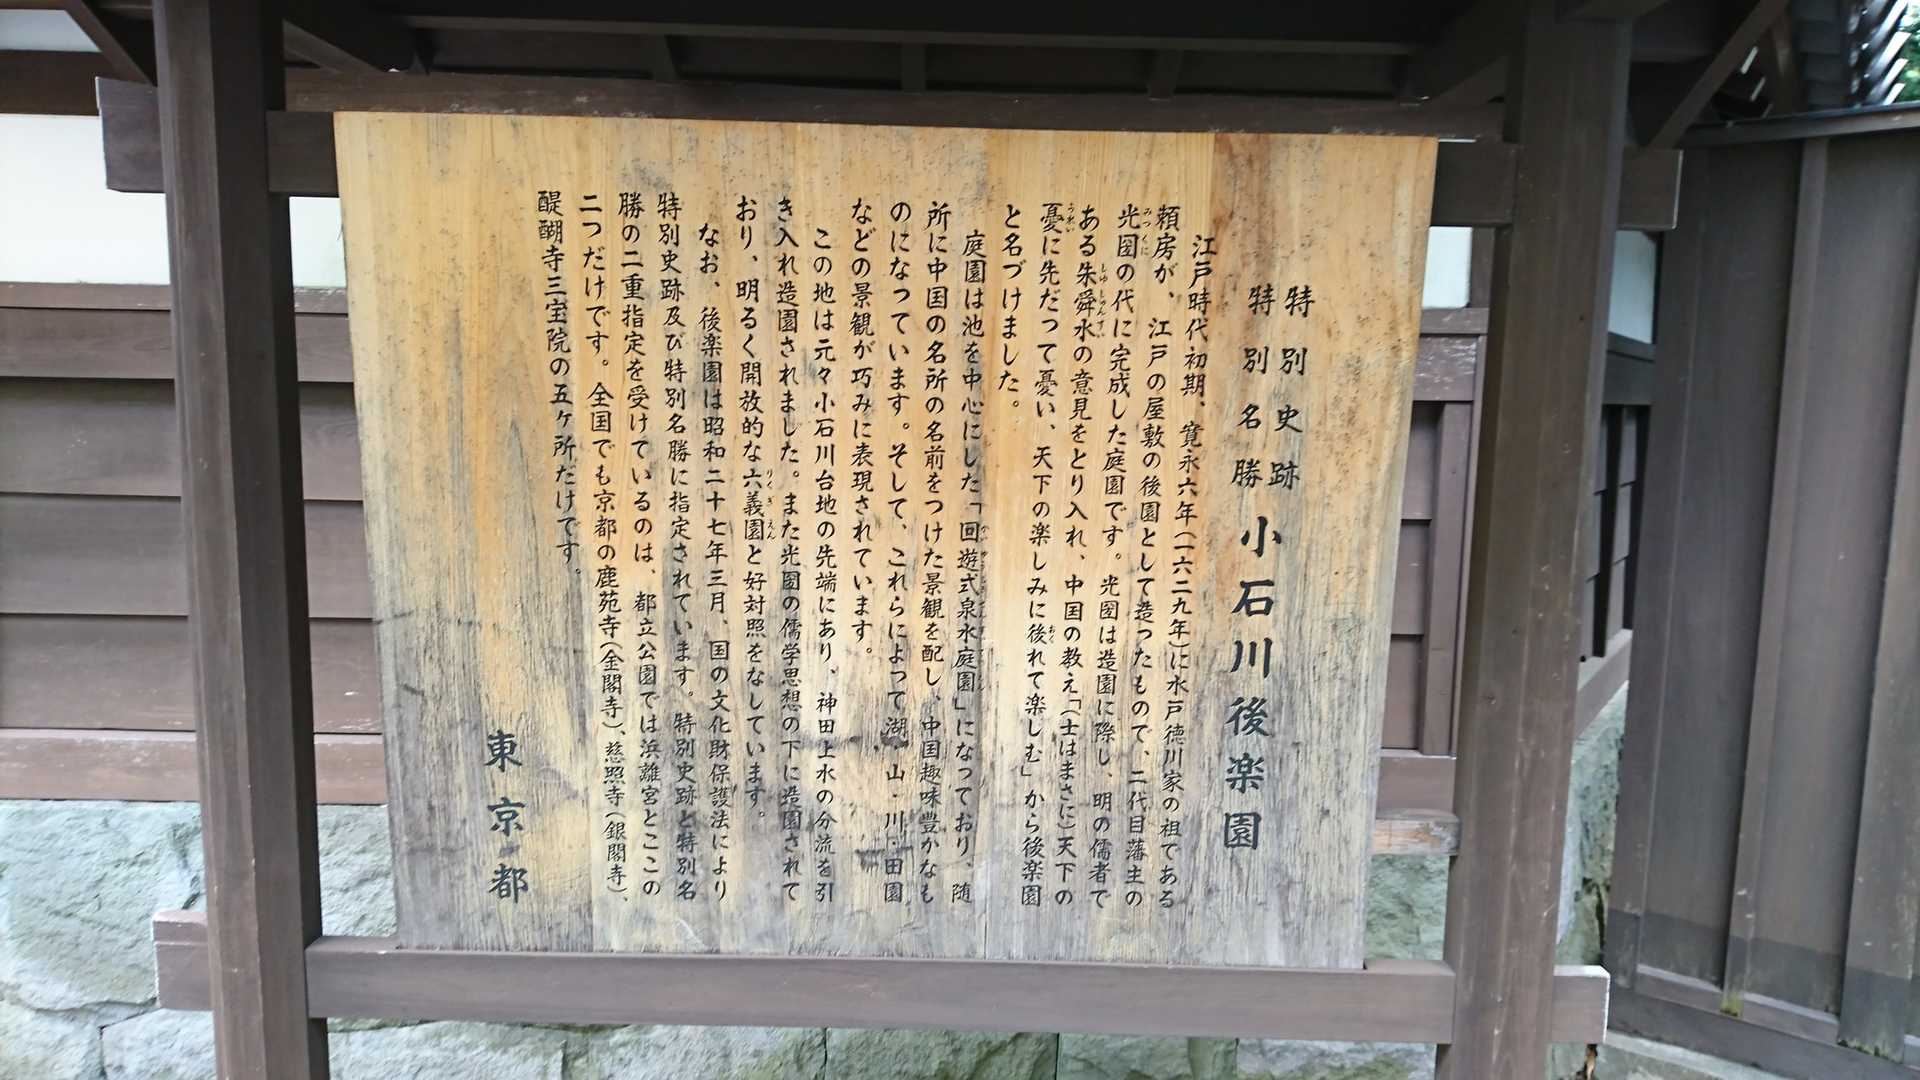 特別史跡
特別名勝
小石川後楽園
江戸時代初期、寛永六年(一六二九年)に水戸徳川家の祖である
頼房が、江戸の屋敷の後園として造ったもので、二代目藩主の
光圀の代に完成した庭園です。光圀は造園に際し、明の儒者で
ある朱舜水の意見をとり入れ、中国の教え「(士はまさに)天下の
憂に先だって憂い、天下の楽しみに後れて楽しむ」から後楽園
と名づけました。
庭園は池を中心にした「回遊式泉水庭園」になっており、随
所に中国の名所の名前をつけた景観を配し、中国趣味豊かなも
のになっています。そして、これらによって湖・山・川・田園
などの景観が巧みに表現されています。
この地は元々小石川台地の先端にあり、神田上水の分流を引
き入れ造園されました。また光圀の儒学思想の下に造園されて
おり、明るく開放的な六義園と好対照をなしています。
なお、後楽園は昭和二十七年三月、国の文化財保護法により
特別史跡及び特別名勝に指定されています。特別史跡と特別名
勝の二重指定を受けているのは、都立公園では浜離宮とここの
二つだけです。全国でも京都の鹿苑寺(金閣寺)、慈照寺(銀閣寺)、
醍醐寺三宝院の五ヶ所だけです。
東京都